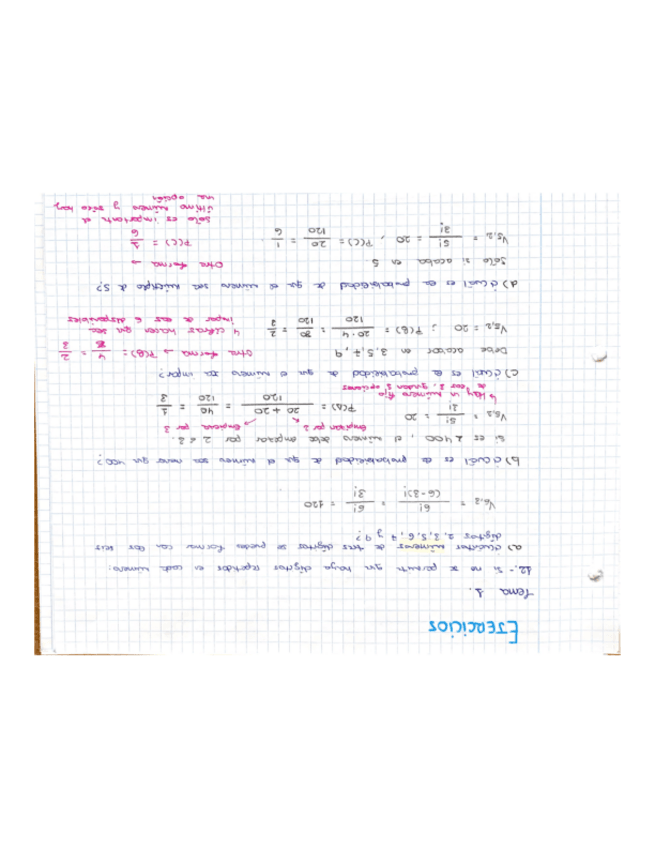 EJERCICIOS
Tema 1.
12.- Si no se permite que haya dígitos repetidos en cada número:
a) ¿Cuántos números de tres dígitos se pueden formar con los seis
dígitos 2, 3, 5, 6, 7 y 9?
V6,3 = 6! / (6-3)! = 6! / 3! = 120
b) ¿Cuál es la probabilidad de que el número sea menor que 400?
Si es < 400, el número debe empezar por 2 ó 3.
V5,2 = 5! / 3! = 20
Empiezan por 2 Empiezan por 3
P(A) = 20 + 20 / 120 = 40 / 120 = 1 / 3
↳ Hay un número fijo
de los 3, quedan 2 opciones
c) ¿Cuál es la probabilidad de que el número sea impar?
Debe acabar en 3, 5, 7, 9
V5,2 = 20 ; P(B) = 20·4 / 120 = 80 / 120 = 2 / 3
Otra forma → P(B) = 4 / 6 = 2 / 3
4 cifras hacen que sea
impar de las 6 disponibles
d) ¿Cuál es la probabilidad de que el número sea múltiplo de 5?
Sólo si acaba en 5.
V5,2 = 5! / 3! = 20 , P(C) = 20 / 120 = 1 / 6
Otra forma →
P(C) = 1 / 6
Sólo es importante el
último número y sólo hay
una opción